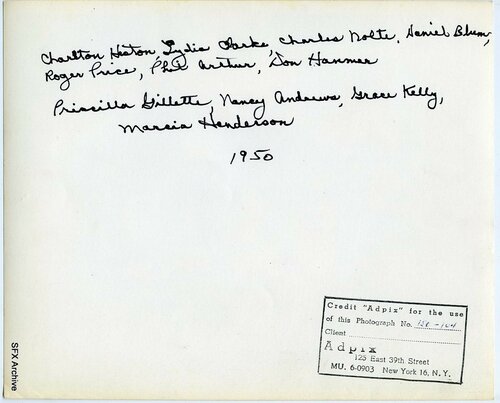 Charlton Heston Lydia Clarke, Charles Nolte, Daniel Blum,
Roger Price, Phil Arthur, Don Hanmer
Priscilla Gillette, Nancy Andrews, Grace Kelly,
Marcia Henderson
1950
Credit "Adpix" for the use
of this Photograph No.
Client
Adpix
125 East 39th Street
MU. 6-0903 New York 16, N. Y.
SFX Archive